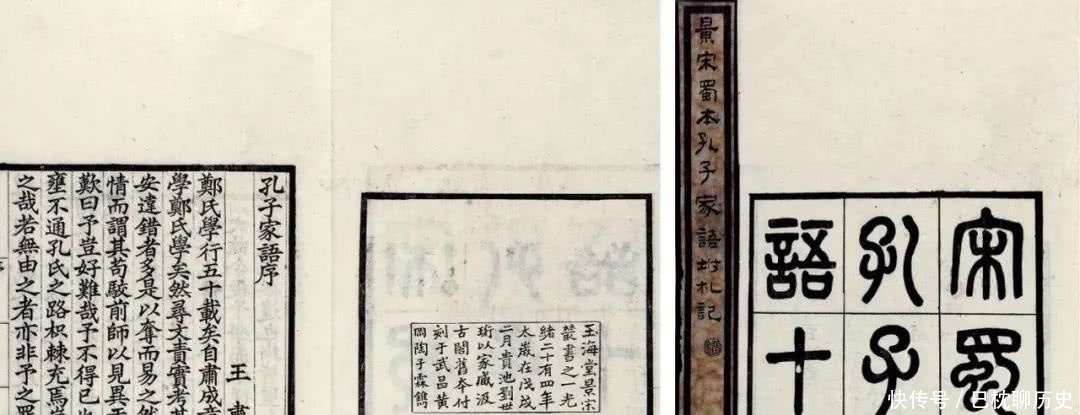 宋蜀
孔子
語十
景宋蜀本孔子家語坿札記
玉海堂景宋
叢書之一光
緒二十有四年
太歲在戊戌
二月貴池劉世
珩以家藏汲
古閣舊本付
刻于武昌黃
岡陶子霖鐫
孔子家語序
王肅
鄭氏學行五十載矣自肅成童
學鄭氏學矣然尋文責實考其
安違錯者多是以奪而易之然
情而謂其苟駁前師以見異于
歎曰予豈好難哉予不得已也
壅不通孔氏之路枳棘充焉豈
之哉若無由之者亦非予之罪
快传号/日枕聊历史